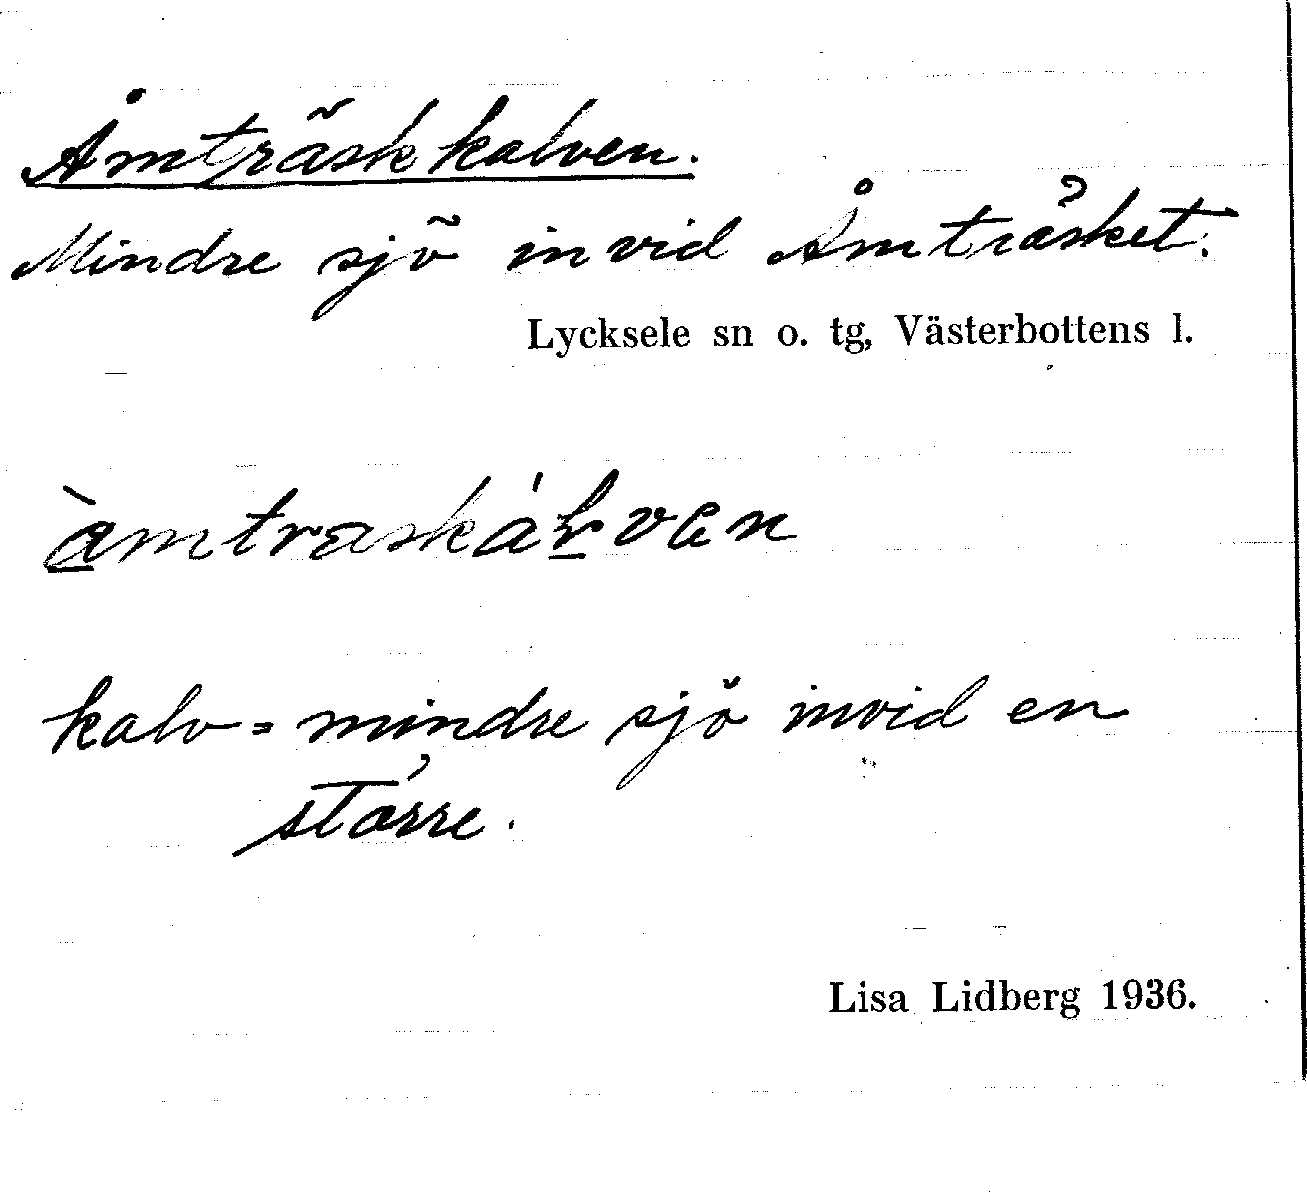 Åmträskkalven.
Mindre sjö invid Åmträsket.
Lycksele sn o. tg, Västerbottens l.
kalv = mindre sjö invid en
större.
Lisa Lidberg 1936.